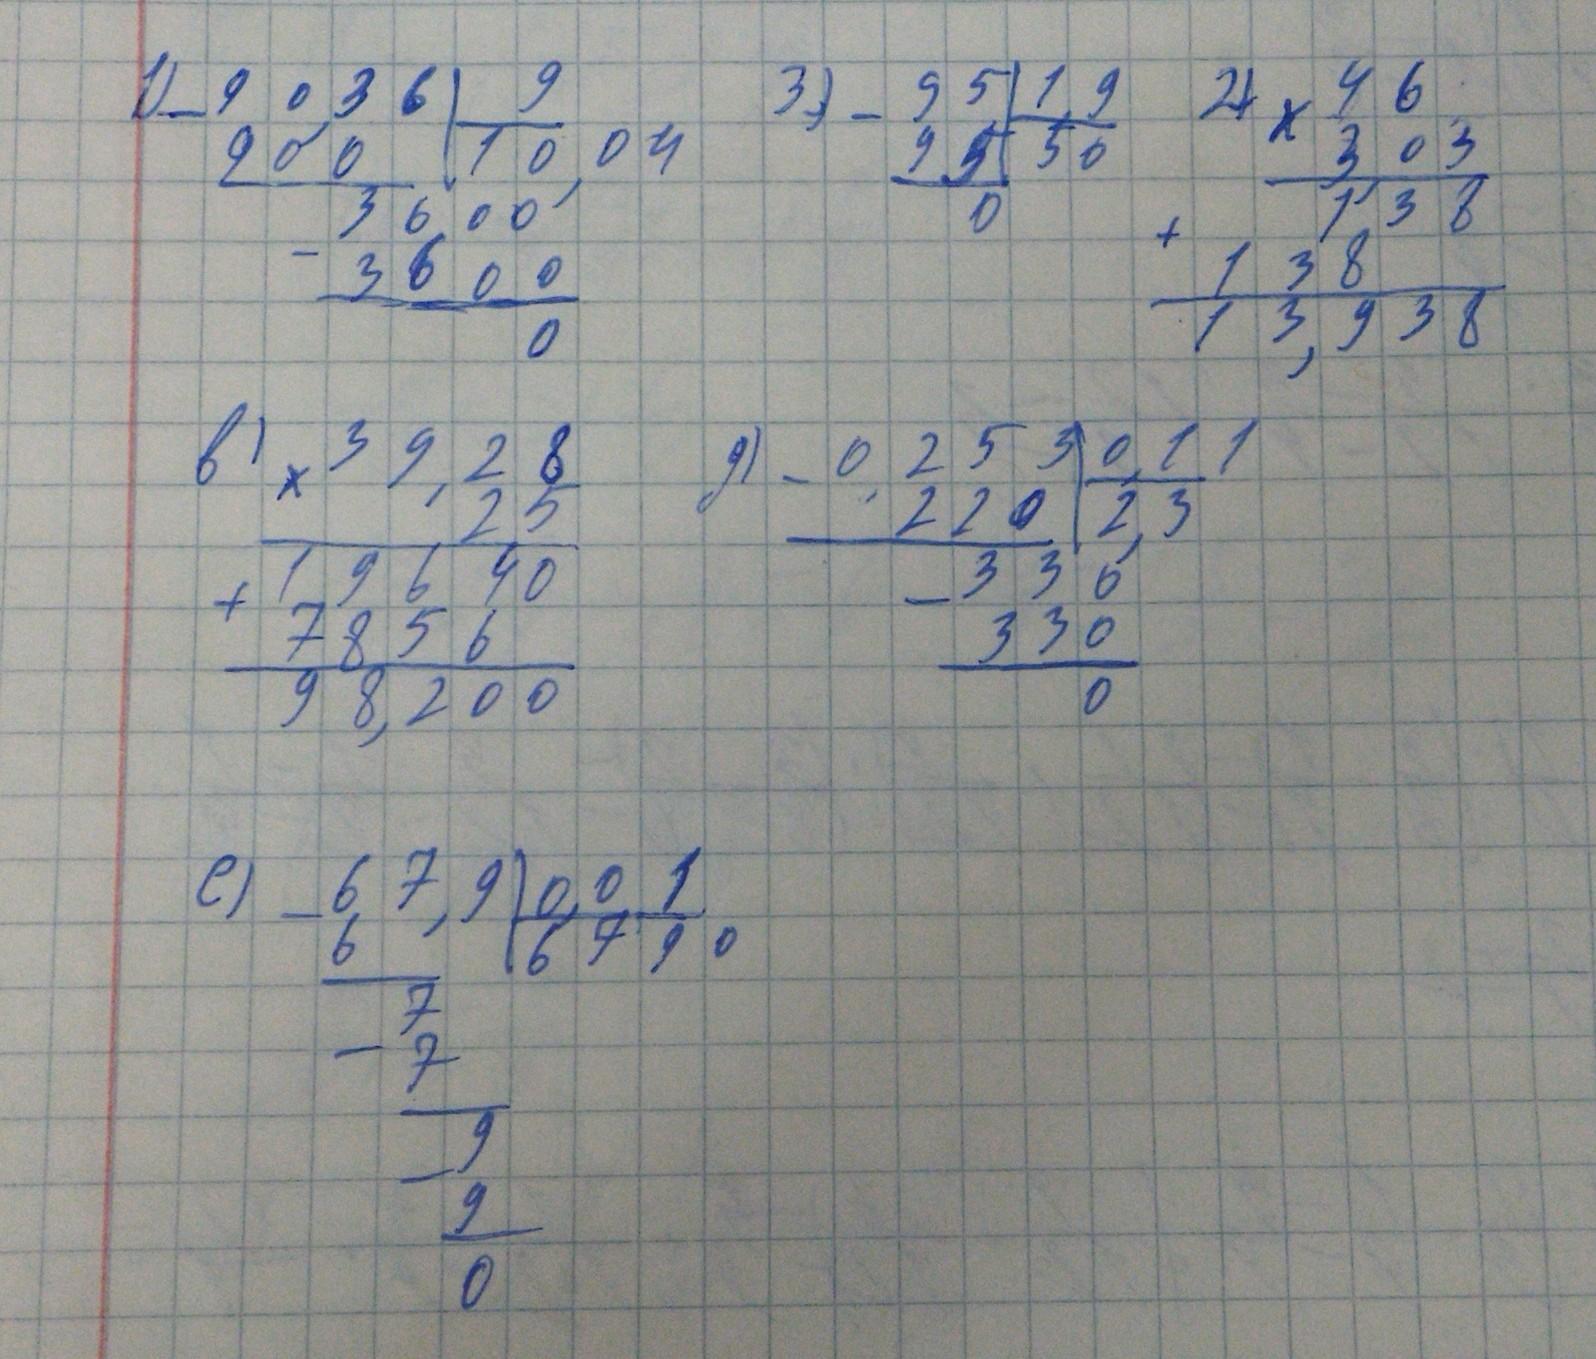 1) - 9 0,3 6 | 9
9 0 0 | 1 0,0 4
3 6,0 0
- 3 6 0 0
0
3) - 9 5 | 1,9
9 5 | 5 0
0
2) × 4 6
3 0 3
1 3 8
+ 1 3 8
1 3,9 3 8
в) × 3 9,2 8
,2 5
+ 1 9 6 4 0
7 8 5 6
9 8,2 0 0
д) - 0,2 5 3 | 0,1 1
2 2 0 | 2,3
- 3 3 6
3 3 0
0
е) - 6 7,9 | 0,0 1
6 | 6 7 9 0
7
- 7
9
- 9
0